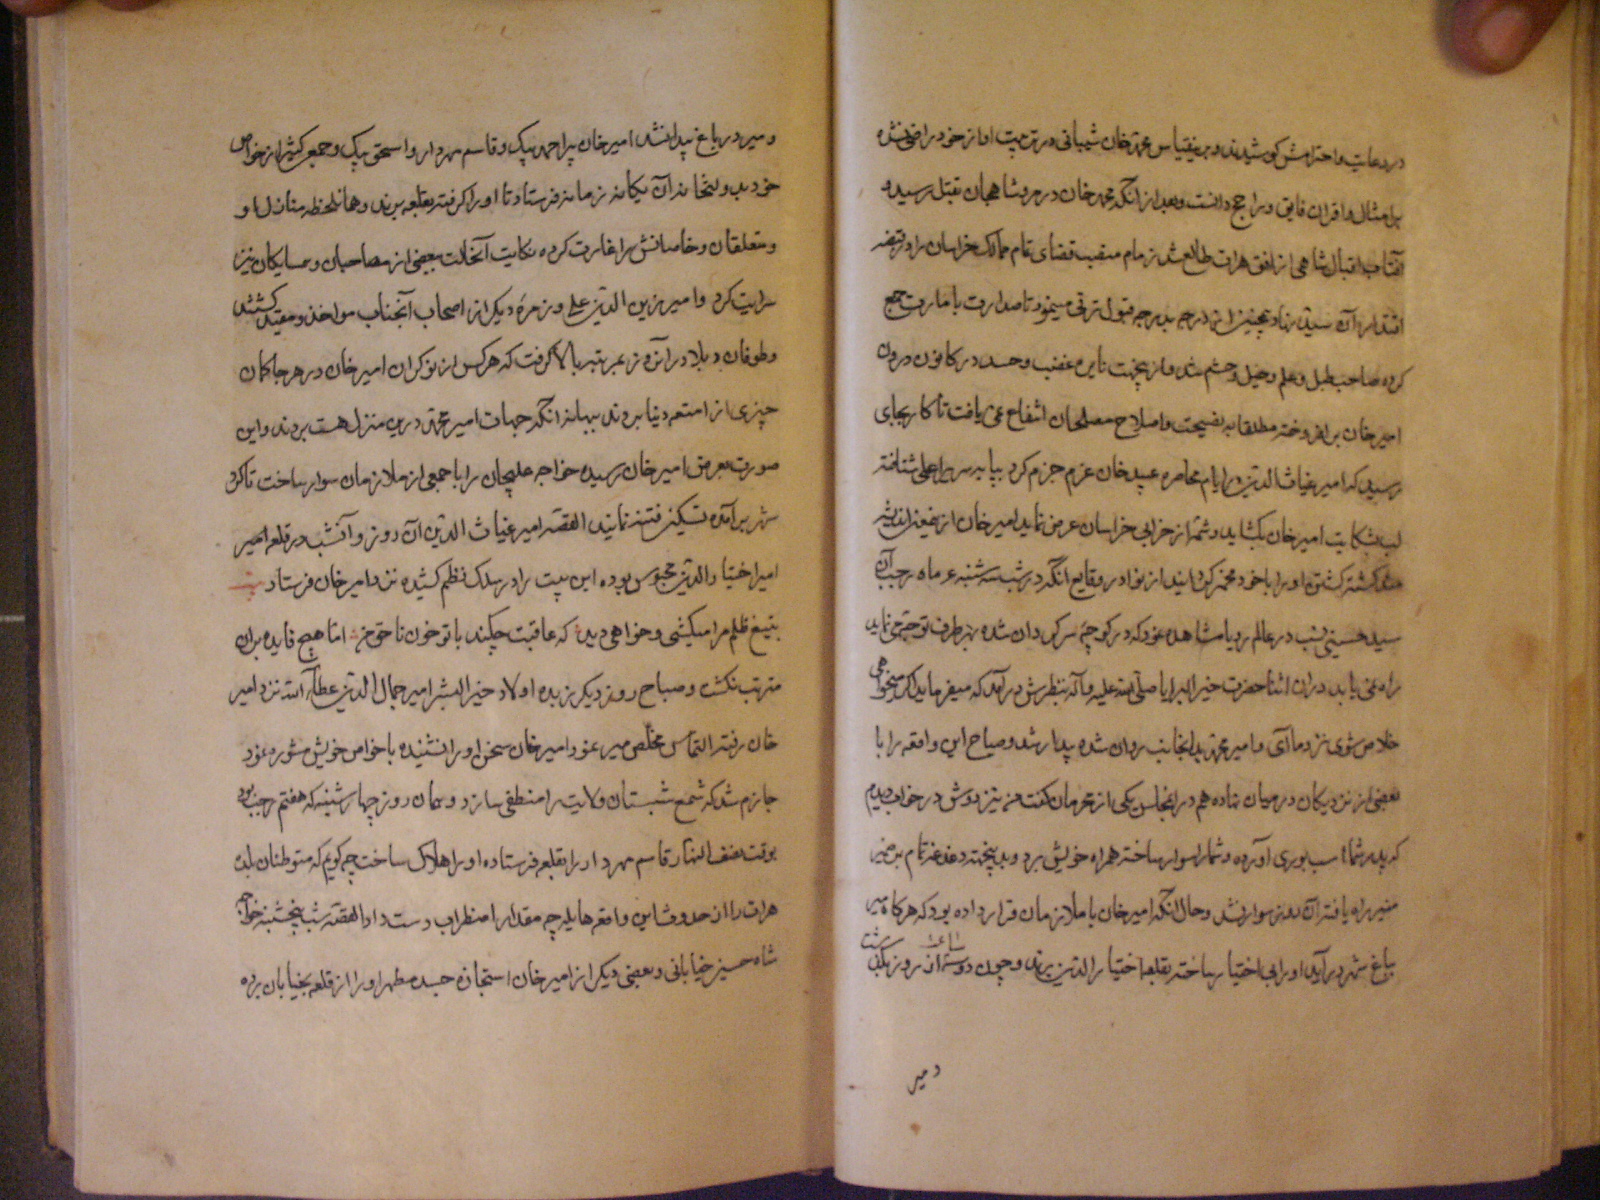 در رعایت و احترامش کوشیدند و برین قیاس محمد خان شیبانی در تربیت او از خود راضی نشده
بر امثال و اقران فایق و راجح دانست و بعد از آنکه محمد خان در مرو شاهجان بقتل رسید و
آفتاب اقبال شاهی از افق هرات طالع شد زمام منصب قضای تمام ممالک خراسان را در قبضه
اقتدار آن سید
کرده صاحب طبل و علم و خیل و حشم شد و از ینجهت نایره غضب و حسد در کانون درون
امیر خان بر افروخته مطلقا به نصیحت و اصلاح مصلحان اطفاء نمی یافت تا کار بجای
رسید که امیر غیاث الدین را ایام محاصره عبید خان عزم جزم کرد بپایه سریر اعلی شتافته
لب بشکایت امیر خان بگشاید و شمه از خرابی خراسان عرض نماید امیر خان از
او را با خود کرد از نوادر وقایع آنکه در شب سه شنبه ماه رجب آن
سید حسینی نسب در عالم رویا مشاهده نمود که در کوچه سرگردان شده بهر طرف توجه می نماید
راه نمی یابد در آن اثنا حضرت خیر البرایا صلی الله علیه و آله بنظرش در آمد که میفرماید اگر میخواهی
خلاص شوی نزد ما آی و امیر محمد بدانجانب روان شده بیدار شد و صباح این واقعه را با
بعضی از نزدیکان در میان نهاده هم در آن مجلس یکی از محرمان گفت من نیز دوش در خواب دیدم
که پدر شما اسب بوری آورده و شما را سوار ساخته همراه خویش برد و بدینجهت دغدغه تمام بر ضمیر
منیر راه یافته آن روز سوار نشد و حال آنکه امیر خان با ملازمان قرار داده بود که هرگاه میر
بباغ شهر در آید او را بی اختیار ساخته بقلعه اختیار الدین برند و چون دو ساعت از آن روز بگذشت
و میر
و میر در باغ پیدا نشد امیر خان پیر احمد بیک و قاسم مهردار و اسحق بیک و جمع کثیر از خواص
خود بدولتخانه آن یگانه زمانه فرستاد تا او را گرفته بقلعه برند و همان لحظه منازل او
و متعلقان و خاصانش را غارت کرده نکایت آنحالت ببعضی از مصاحبان و همسایگان نیز
سرایت کرد و امیر زین الدین علی و زمره دیگر از اصحاب آنجناب مواخذ و مقید گشتند
و طوفان و بلا در آن روز بمرتبه بالا گرفت که هرکس از نوکران امیر خان در هر جا گمان
چیزی از امتعه دنیا بردند ببهانه آنکه جهات امیر محمد درین منزل هست بردند و این
صورت بعرض امیر خان رسیده خواجه علیجان را با جمعی از ملازمان سوار ساخت تا گرد
شهر بر آمده تسکین فتنه نمایند القصه امیر غیاث الدین آن روز و آنشب در قلعه امیر
امیر اختیار الدین محبوس بوده این بیت را در سلک نظم کشیده نزد امیر خان فرستاد بیت
بتیغ ظلم مرا میکشی و خواهی دید که عاقبت چکند با تو خون ناحق من اما هیچ فایده بران
مترتب نگشت و صباح روز دیگر زبده اولاد خیر البشر امیر جمال الدین عطاء الله نزد امیر
خان رفته التماس مخلص میر نمود امیر خان سخن او را نشنیده با خواص خویش مشوره نمود
جازم شد که شمع شبستان ولایت را منطفی سازد و همان روز چهارشنبه که هفتم رجب بود
بوقت نصف النهار قاسم مهردار را بقلعه فرستاده او را هلاک ساخت چه گویم که متوطنان بلده
هرات را از حدوث این واقعه هایله چه مقدار اضطراب دست داد القصه شب پنجشنبه خواجه
شاه حسین خیابانی و بعضی دیگر از امیر خان استجازه جسد مطهر او را از قلعه بخیابان برده